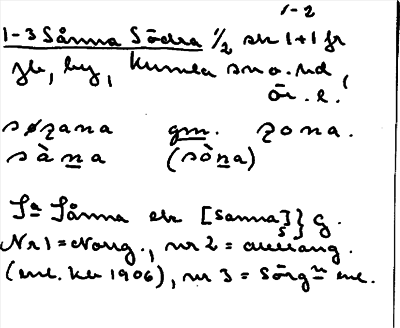 1-2
1-3 Sånna Södra 1/2 sk 1+1 fr
jb, by, Kumla sn o. hd,
Ör. l.
søzana gm. zona.
sàna (sòna)
Sa Sånna sk [sanna] } G.
Nr 1 = Norrg., nr 2 = Mellang.
(enl. kb 1906), nr 3 = Sörgn enl.